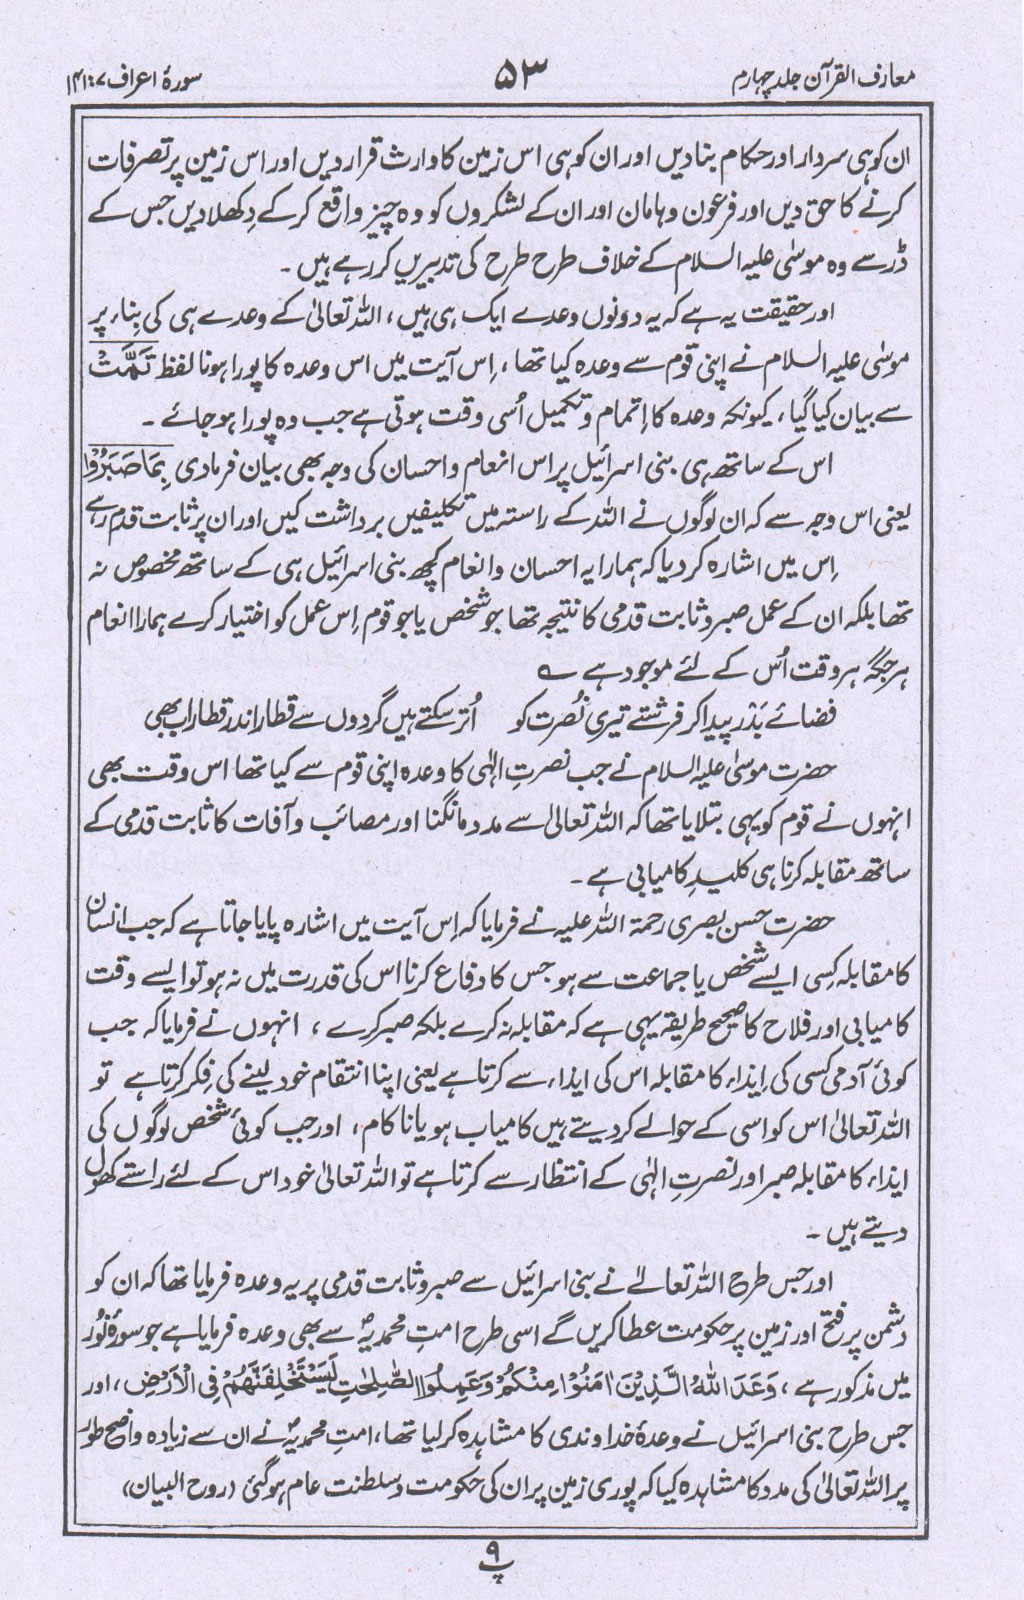 معارف القرآن جلد چہارم
۵۳
سورۂ اعراف ۷ : ۱۴۱
ان کو ہی سردار اور حکام بنا دیں اور ان کو ہی اس زمین کا وارث قرار دیں اور اس زمین پر تصرفات
کرنے کا حق دیں اور فرعون و ہامان اور ان کے لشکروں کو وہ چیز واقع کر کے دِکھلا دیں جس کے
ڈر سے وہ موسٰی علیہ السلام کے خلاف طرح طرح کی تدبیریں کر رہے ہیں ۔
اور حقیقت یہ ہے کہ یہ دونوں وعدے ایک ہی ہیں، اللہ تعالیٰ کے وعدے ہی کی بِناء پر
موسٰی علیہ السلام نے اپنی قوم سے وعدہ کیا تھا، اِس آیت میں اس وعدہ کا پورا ہونا لفظ تَمَّتْ
سے بیان کیا گیا، کیونکہ وعدہ کا اِتمام و تکمیل اُسی وقت ہوتی ہے جب وہ پورا ہو جائے ۔
اس کے ساتھ ہی بنی اسرائیل پر اس انعام و احسان کی وجہ بھی بیان فرما دی بِمَا صَبَرُوْا
یعنی اس وجہ سے کہ ان لوگوں نے اللہ کے راستہ میں تکلیفیں برداشت کیں اور ان پر ثابت قدم رہے
اِس میں اشارہ کر دیا کہ ہمارا یہ احسان و انعام کچھ بنی اسرائیل ہی کے ساتھ مخصوص نہ
تھا بلکہ ان کے عمل صبر و ثابت قدمی کا نتیجہ تھا جو شخص یا جو قوم اِس عمل کو اختیار کرے ہمارا انعام
ہر جگہ ہر وقت اُس کے لئے موجود ہے ؎
فضائے بَدْر پیدا کر فرشتے تیری نُصرت کو اُتر سکتے ہیں گردوں سے قطار اندر قطار اب بھی
حضرت موسٰی علیہ السلام نے جب نصرتِ الٰہی کا وعدہ اپنی قوم سے کیا تھا اس وقت بھی
انہوں نے قوم کو یہی بتلایا تھا کہ اللہ تعالیٰ سے مدد مانگنا اور مصائب و آفات کا ثابت قدمی کے
ساتھ مقابلہ کرنا ہی کلیدِ کامیابی ہے ۔
حضرت حسن بصری رحمۃ اللہ علیہ نے فرمایا کہ اِس آیت میں اشارہ پایا جاتا ہے کہ جب انسان
کا مقابلہ کِسی ایسے شخص یا جماعت سے ہو جس کا دفاع کرنا اس کی قدرت میں نہ ہو تو ایسے وقت
کامیابی اور فلاح کا صحیح طریقہ یہی ہے کہ مقابلہ نہ کرے بلکہ صبر کرے ، انہوں نے فرمایا کہ جب
کوئی آدمی کسی کی ایذاء کا مقابلہ اس کی ایذاء سے کرتا ہے یعنی اپنا انتقام خود لینے کی فِکر کرتا ہے تو
اللہ تعالیٰ اس کو اسی کے حوالے کر دیتے ہیں کامیاب ہو یا ناکام، اور جب کوئی شخص لوگوں کی
ایذاء کا مقابلہ صبر اور نصرتِ الٰہی کے انتظار سے کرتا ہے تو اللہ تعالیٰ خود اس کے لئے راستے کھول
دیتے ہیں ۔
اور جس طرح اللہ تعالےٰ نے بنی اسرائیل سے صبر و ثابت قدمی پر یہ وعدہ فرمایا تھا کہ ان کو
دشمن پر فتح اور زمین پر حکومت عطا کریں گے اسی طرح امتِ محمدیہؐ سے بھی وعدہ فرمایا ہے جو سورۂ نُور
میں مذکور ہے ، وَعَدَ اللّٰهُ الَّذِيْنَ اٰمَنُوْا مِنْكُمْ وَعَمِلُوا الصّٰلِحٰتِ لَيَسْتَخْلِفَنَّهُمْ فِي الْاَرْضِ ، اور
جس طرح بنی اسرائیل نے وعدۂ خداوندی کا مشاہدہ کر لیا تھا، امتِ محمدیہؐ نے ان سے زیادہ واضح طور
پر اللہ تعالیٰ کی مدد کا مشاہدہ کیا کہ پوری زمین پر ان کی حکومت و سلطنت عام ہو گئی (روح البیان)
۹